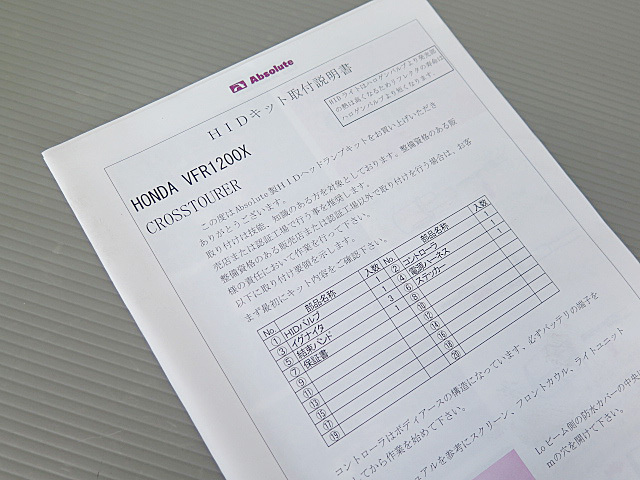 Absolute
HIDキット取付説明書
HIDライトはハロゲンバルブより発光調
の熱は高くなるためリフレクタの寿命は
ハロゲンバルブより短くなります。
HONDA VFR1200X
CROSSTOURER
この度はAbsolute製HIDヘッドランプキットをお買い上げいただき
ありがとうございます。
取り付けは技能、知識のある方を対象としております。整備資格のある販
売店または認証工場で行う事を推奨します。
整備資格のある販売店または認証工場以外で取り付けを行う場合は、お客
様の責任において作業を行って下さい。
以下に取り付け要領を示します。
まず最初にキット内容をご確認下さい。
No 部品名称 入数 No. 部品名称 入数
① HIDバルブ 1 ② コントローラ 1
③ イグナイタ 1 ④ 電源ハーネス 1
⑤ 結束バンド 3 ⑥ ステッカー 1
⑦ 保証書 1 ⑧
⑨ ⑩
⑪ ⑫
⑬ ⑭
⑮ ⑯
⑰ ⑱
⑲ ⑳
コントローラはボディアースの構造になっています、必ずバッテリの端子を
してから作業を始めて下さい。
アルを参考にスクリーン、フロントカウル、ライトユニット
Loビーム側の防水カバーの中央に
mの穴を開けて下さい。